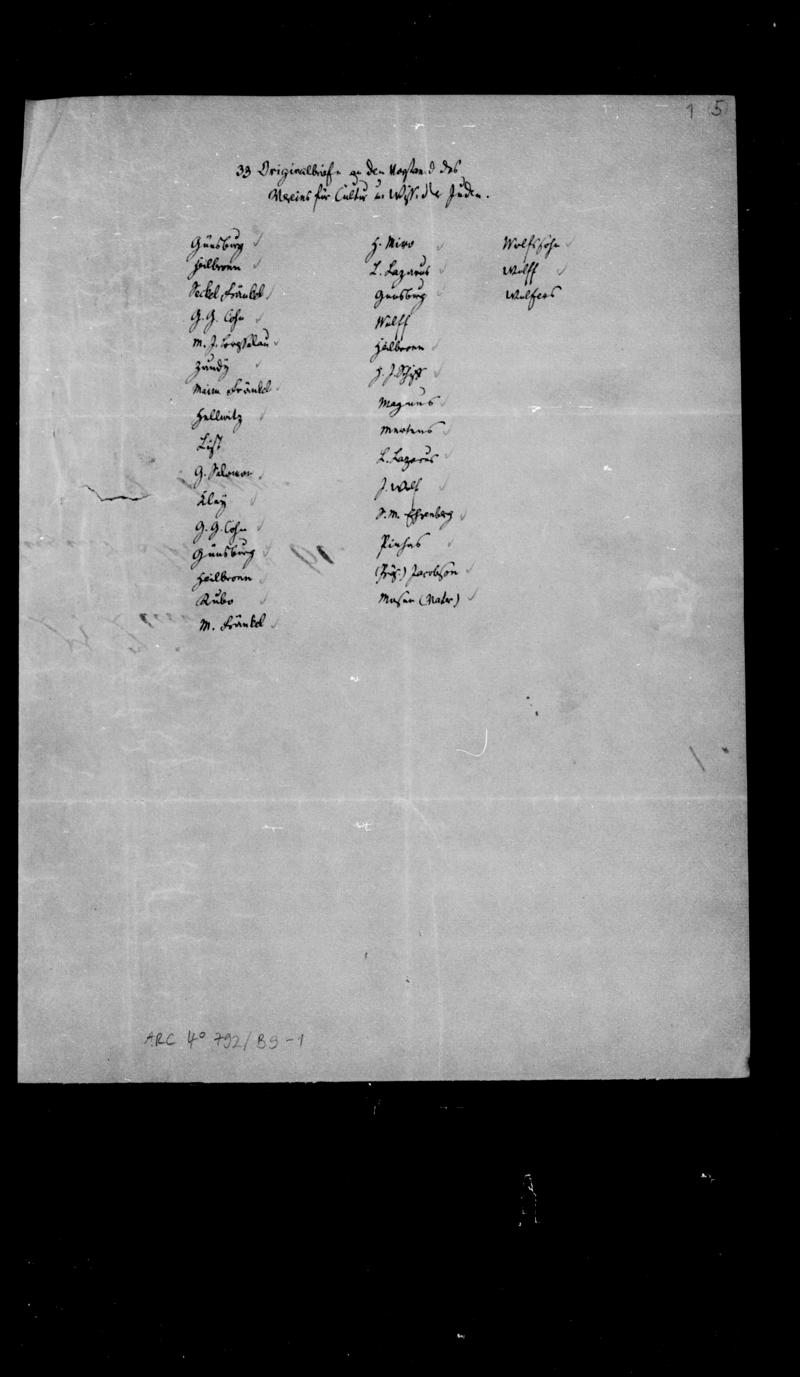 1 5
33 Originalbriefe an den Vorstand des
Vereins für Cultur u. Wiss. der Juden.
Günsburg
Heilbronn
Seckel Fränkel
G. G. Cohn
M. J.
Zundy
Maim Fränkel
Hellwitz
List
G. Salomon
Kley
G. G. Cohn
Günsburg
Heilbronn
Rubo
M. Fränkel
H. Miro
L. Lazarus
Günsburg
Wolff
Heilbronn
H. J. Schiff
Magnus
Mertens
L. Lazarus
J. Wolf
S. M. Ehrenberg
Pinhas
(Präs.) Jacobson
Moser (Vater)
Wolfssohn
Wulff
Wolfers
ARC 4° 792/B9-1